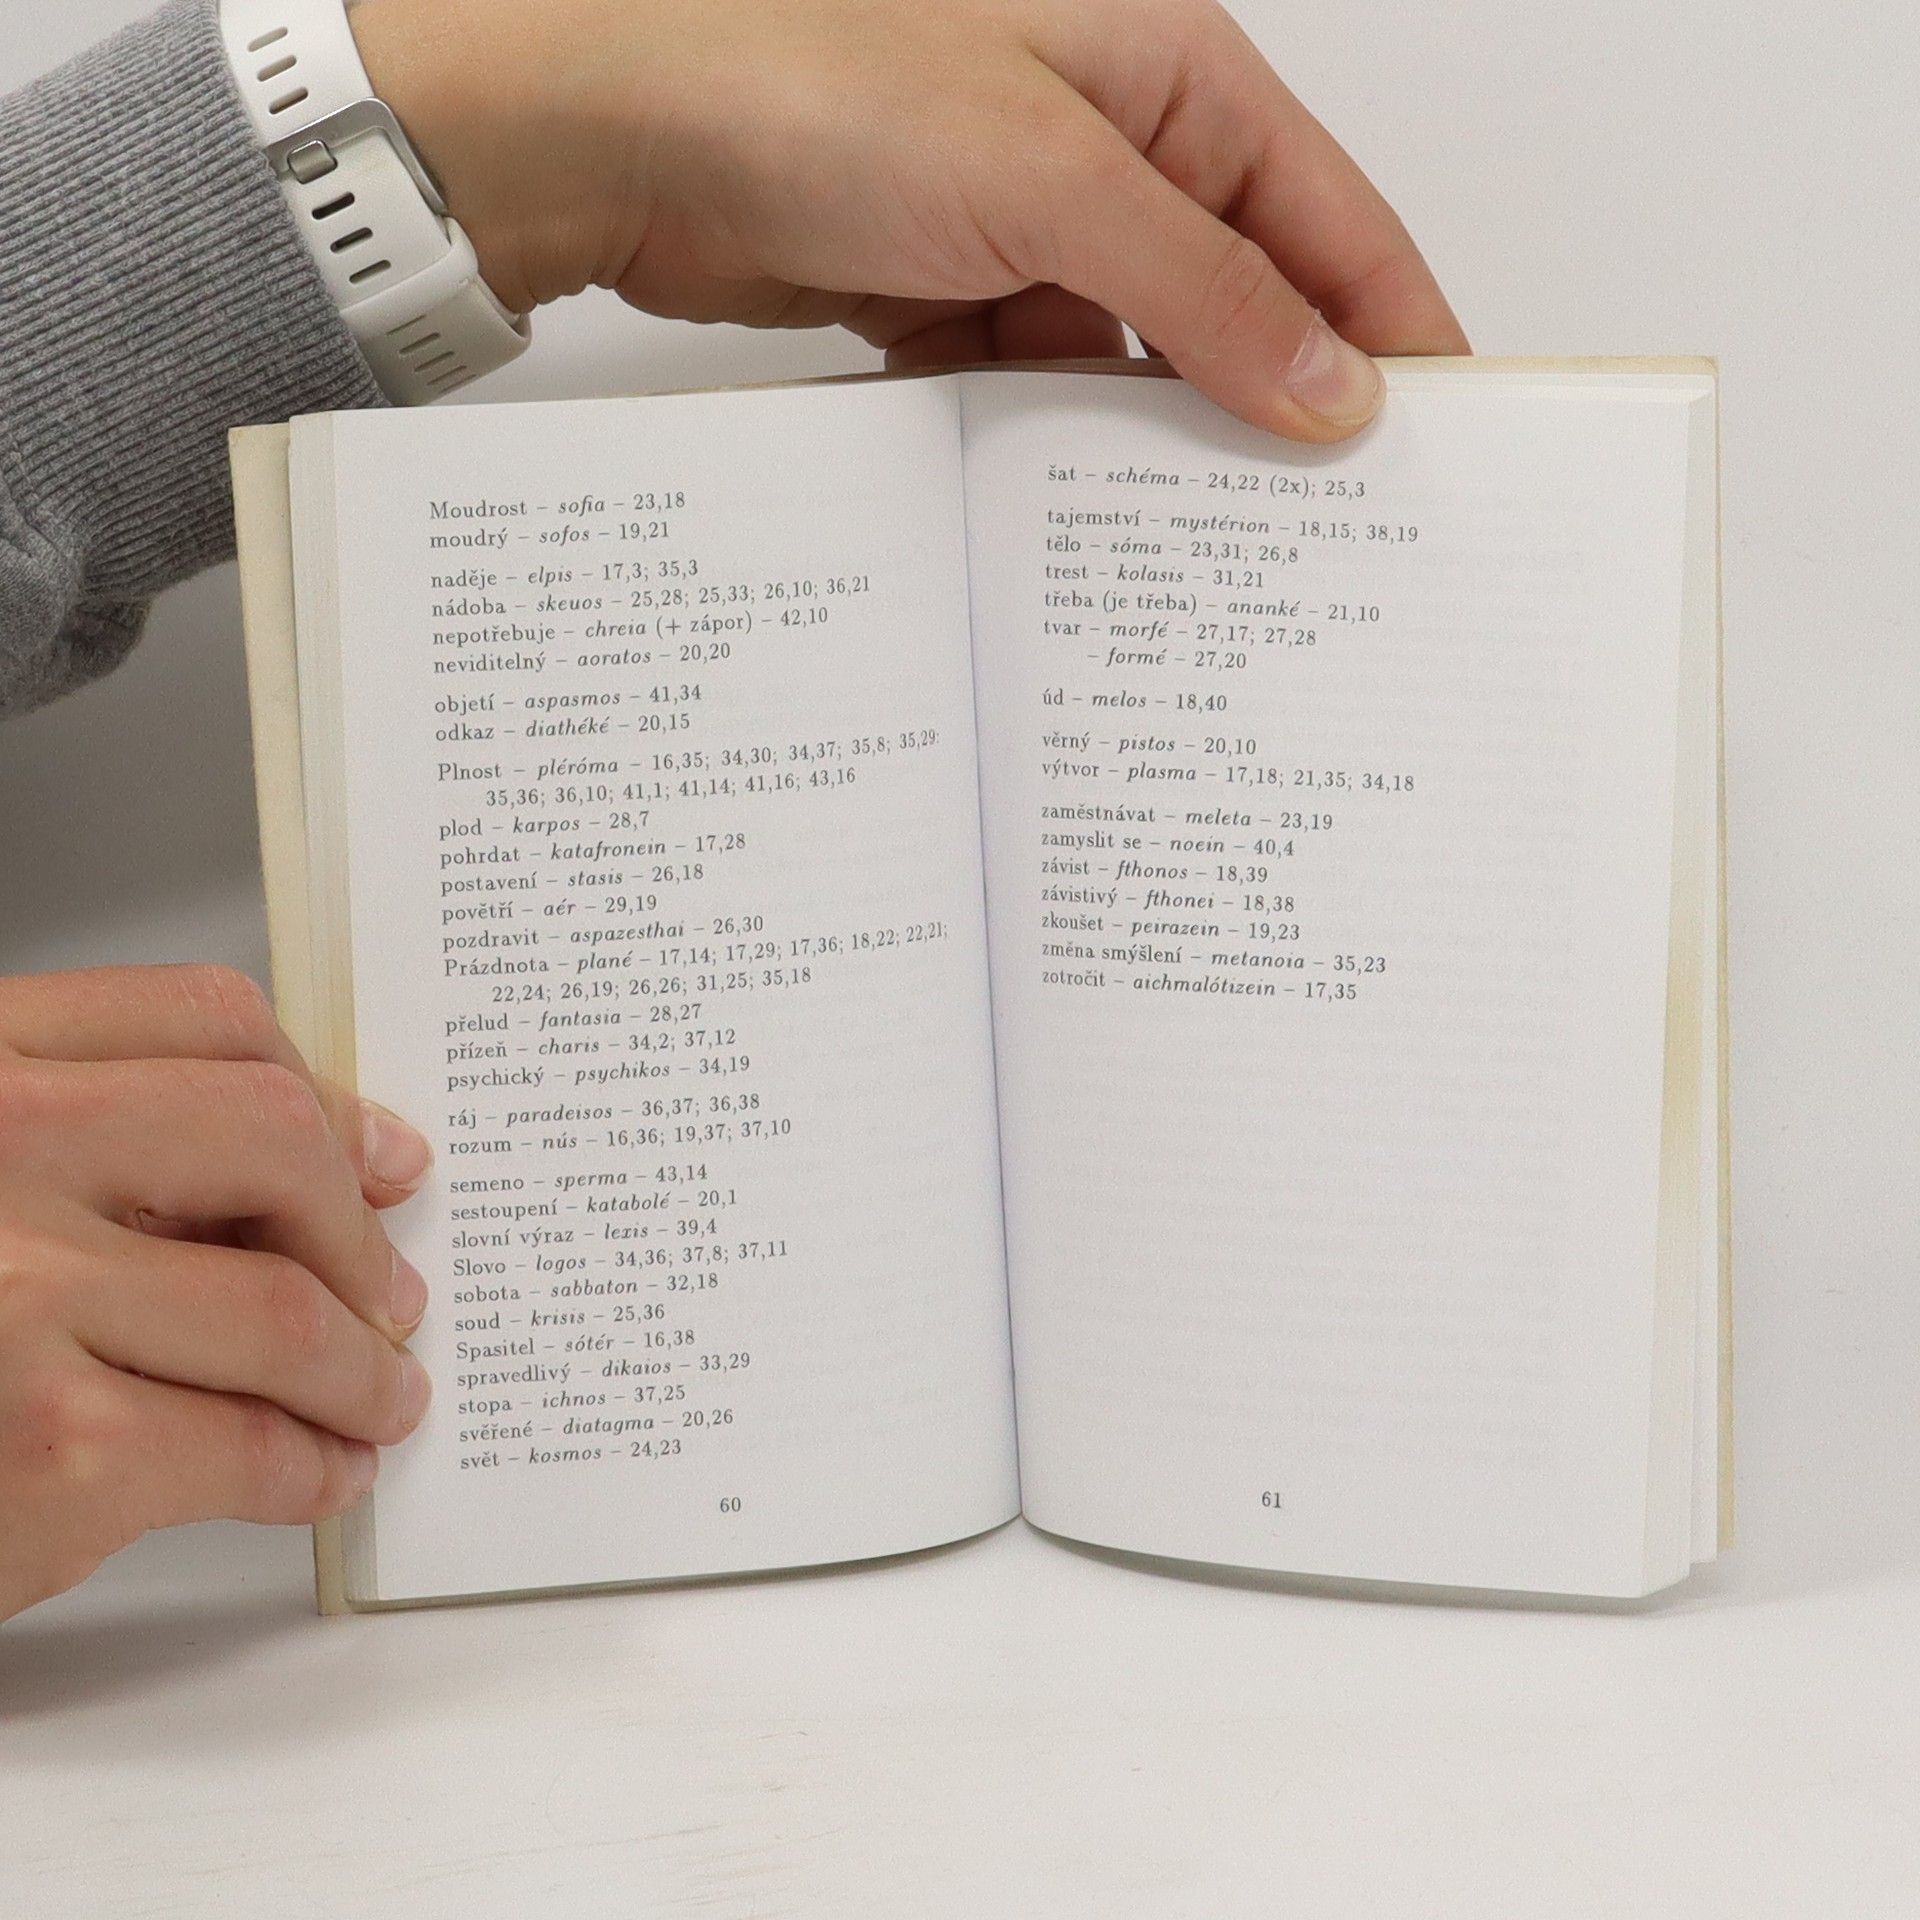 Moudrost – sofia – 23,18
moudrý – sofos – 19,21
naděje – elpis – 17,3; 35,3
nádoba – skeuos – 25,28; 25,33; 26,10; 36,21
nepotřebuje – chreia (+ zápor) – 42,10
neviditelný – aoratos – 20,20
objetí – aspasmos – 41,34
odkaz – diathéké – 20,15
Plnost – pléróma – 16,35; 34,30; 34,37; 35,8; 35,29;
35,36; 36,10; 41,1; 41,14; 41,16; 43,16
plod – karpos – 28,7
pohrdat – katafronein – 17,28
postavení – stasis – 26,18
povětří – aér – 29,19
pozdravit – aspazesthai – 26,30
Prázdnota – plané – 17,14; 17,29; 17,36; 18,22; 22,21;
22,24; 26,19; 26,26; 31,25; 35,18
přelud – fantasia – 28,27
přízeň – charis – 34,2; 37,12
psychický – psychikos – 34,19
ráj – paradeisos – 36,37; 36,38
rozum – nús – 16,36; 19,37; 37,10
semeno – sperma – 43,14
sestoupení – katabolé – 20,1
slovní výraz – lexis – 39,4
Slovo – logos – 34,36; 37,8; 37,11
sobota – sabbaton – 32,18
soud – krisis – 25,36
Spasitel – sótér – 16,38
spravedlivý – dikaios – 33,29
stopa – ichnos – 37,25
svěřené – diatagma – 20,26
svět – kosmos – 24,23
60
šat – schéma – 24,22 (2x); 25,3
tajemství – mystérion – 18,15; 38,19
tělo – sóma – 23,31; 26,8
trest – kolasis – 31,21
třeba (je třeba) – ananké – 21,10
tvar – morfé – 27,17; 27,28
– formé – 27,20
úd – melos – 18,40
věrný – pistos – 20,10
výtvor – plasma – 17,18; 21,35; 34,18
zaměstnávat – meleta – 23,19
zamyslit se – noein – 40,4
závist – fthonos – 18,39
závistivý – fthonei – 18,38
zkoušet – peirazein – 19,23
změna smýšlení – metanoia – 35,23
zotročit – aichmalótizein – 17,35
61